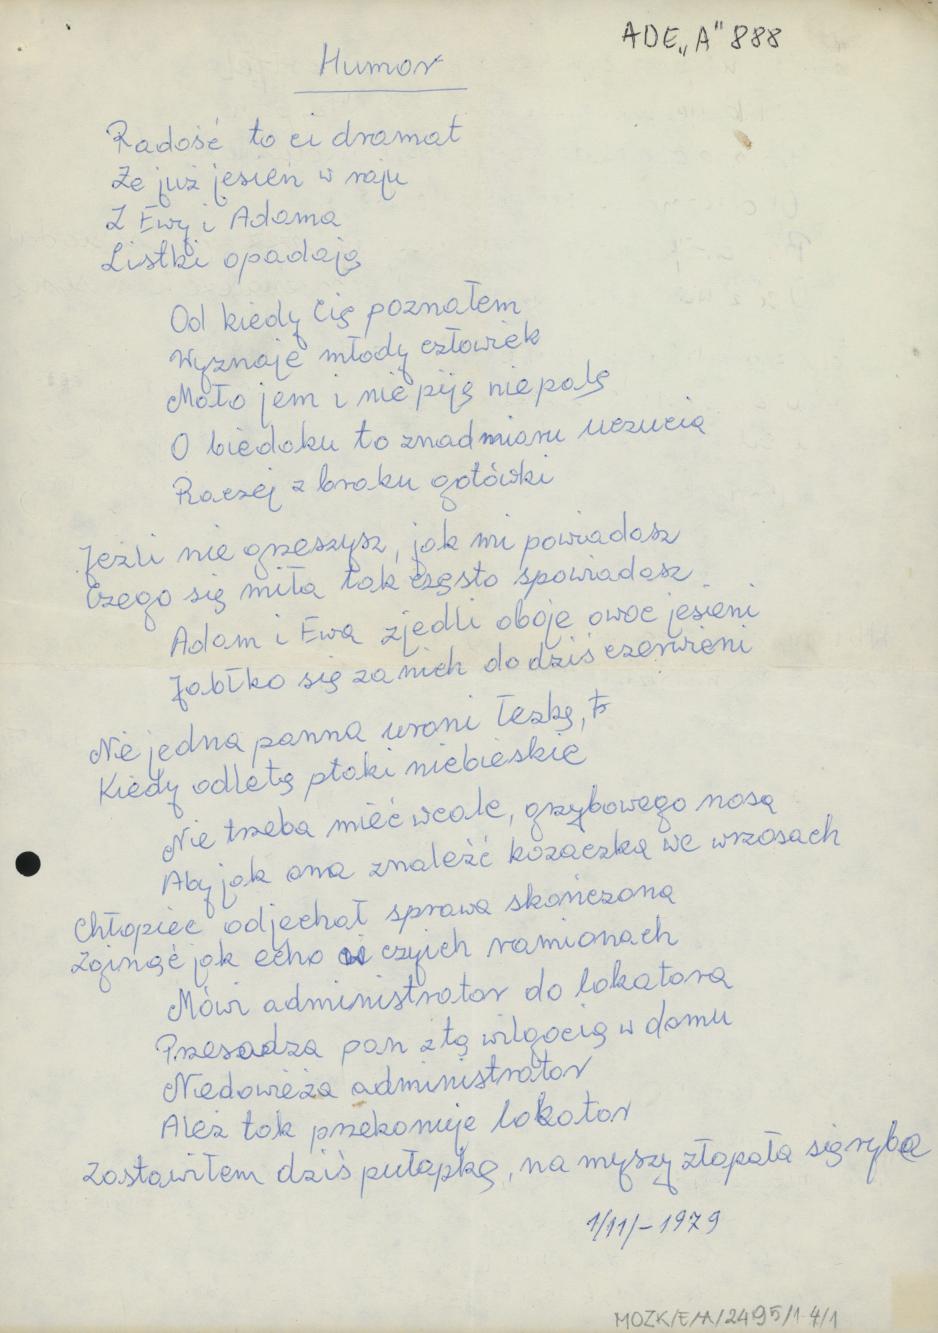 ADE„A" 888
Humor
Radość to ci dramat
Że już jesień w raju
Z Ewy i Adama
Listki opadają
Od kiedy Cię poznałem
Wyznaje młody człowiek
Mało jem i nie piję nie palę
O biedaku to znadmiaru uczucia
Raczej z braku gotówki
Jeżli nie grzeszysz, jak mi powiadasz
Czego się miła tak często spowiadasz.
Adam i Ewa zjedli oboje owoc jesieni
Jabłko się za nich do dziś czerwieni
Nie jedna panna uroni łezkę,
Kiedy odletą ptaki niebieskie
Nie trzeba mieć wcale, grzybowego nosa
Aby jak ona znaleźć kozaczka we wrzosach
Chłopiec odjechał sprawa skończona
Zginąć jak echo w czyich ramionach
Mówi administrator do lokatora
Przesadza pan z tą wilgocią w domu
Niedowieża administrator
Ależ tak przekonuje lokator
Zostawiłem dziś pułapkę, na myszy złapała się ryba
1/11/-1979
MOZK/E/A/2495/1-4/1